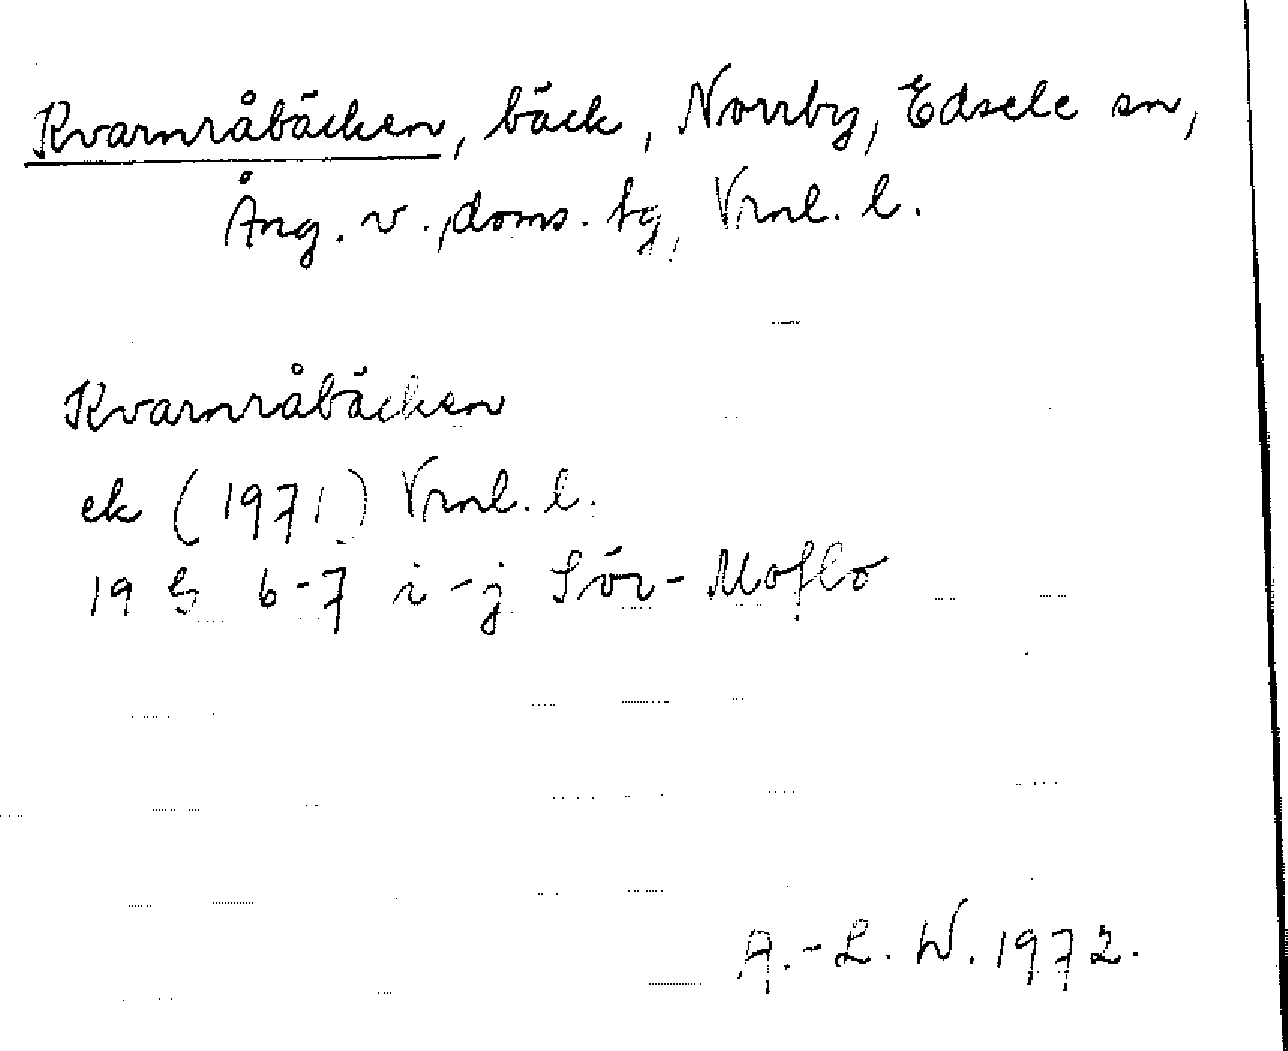 Kvarnråbäcken, bäck, Norrby, Edsele sn,
Ång. v. doms. tg, Vrnl. l.
Kvarnråbäcken
ek (1971) Vrnl. l.
19 G 6-7 i-j Sör-Moflo
A.-L. W. 1972.